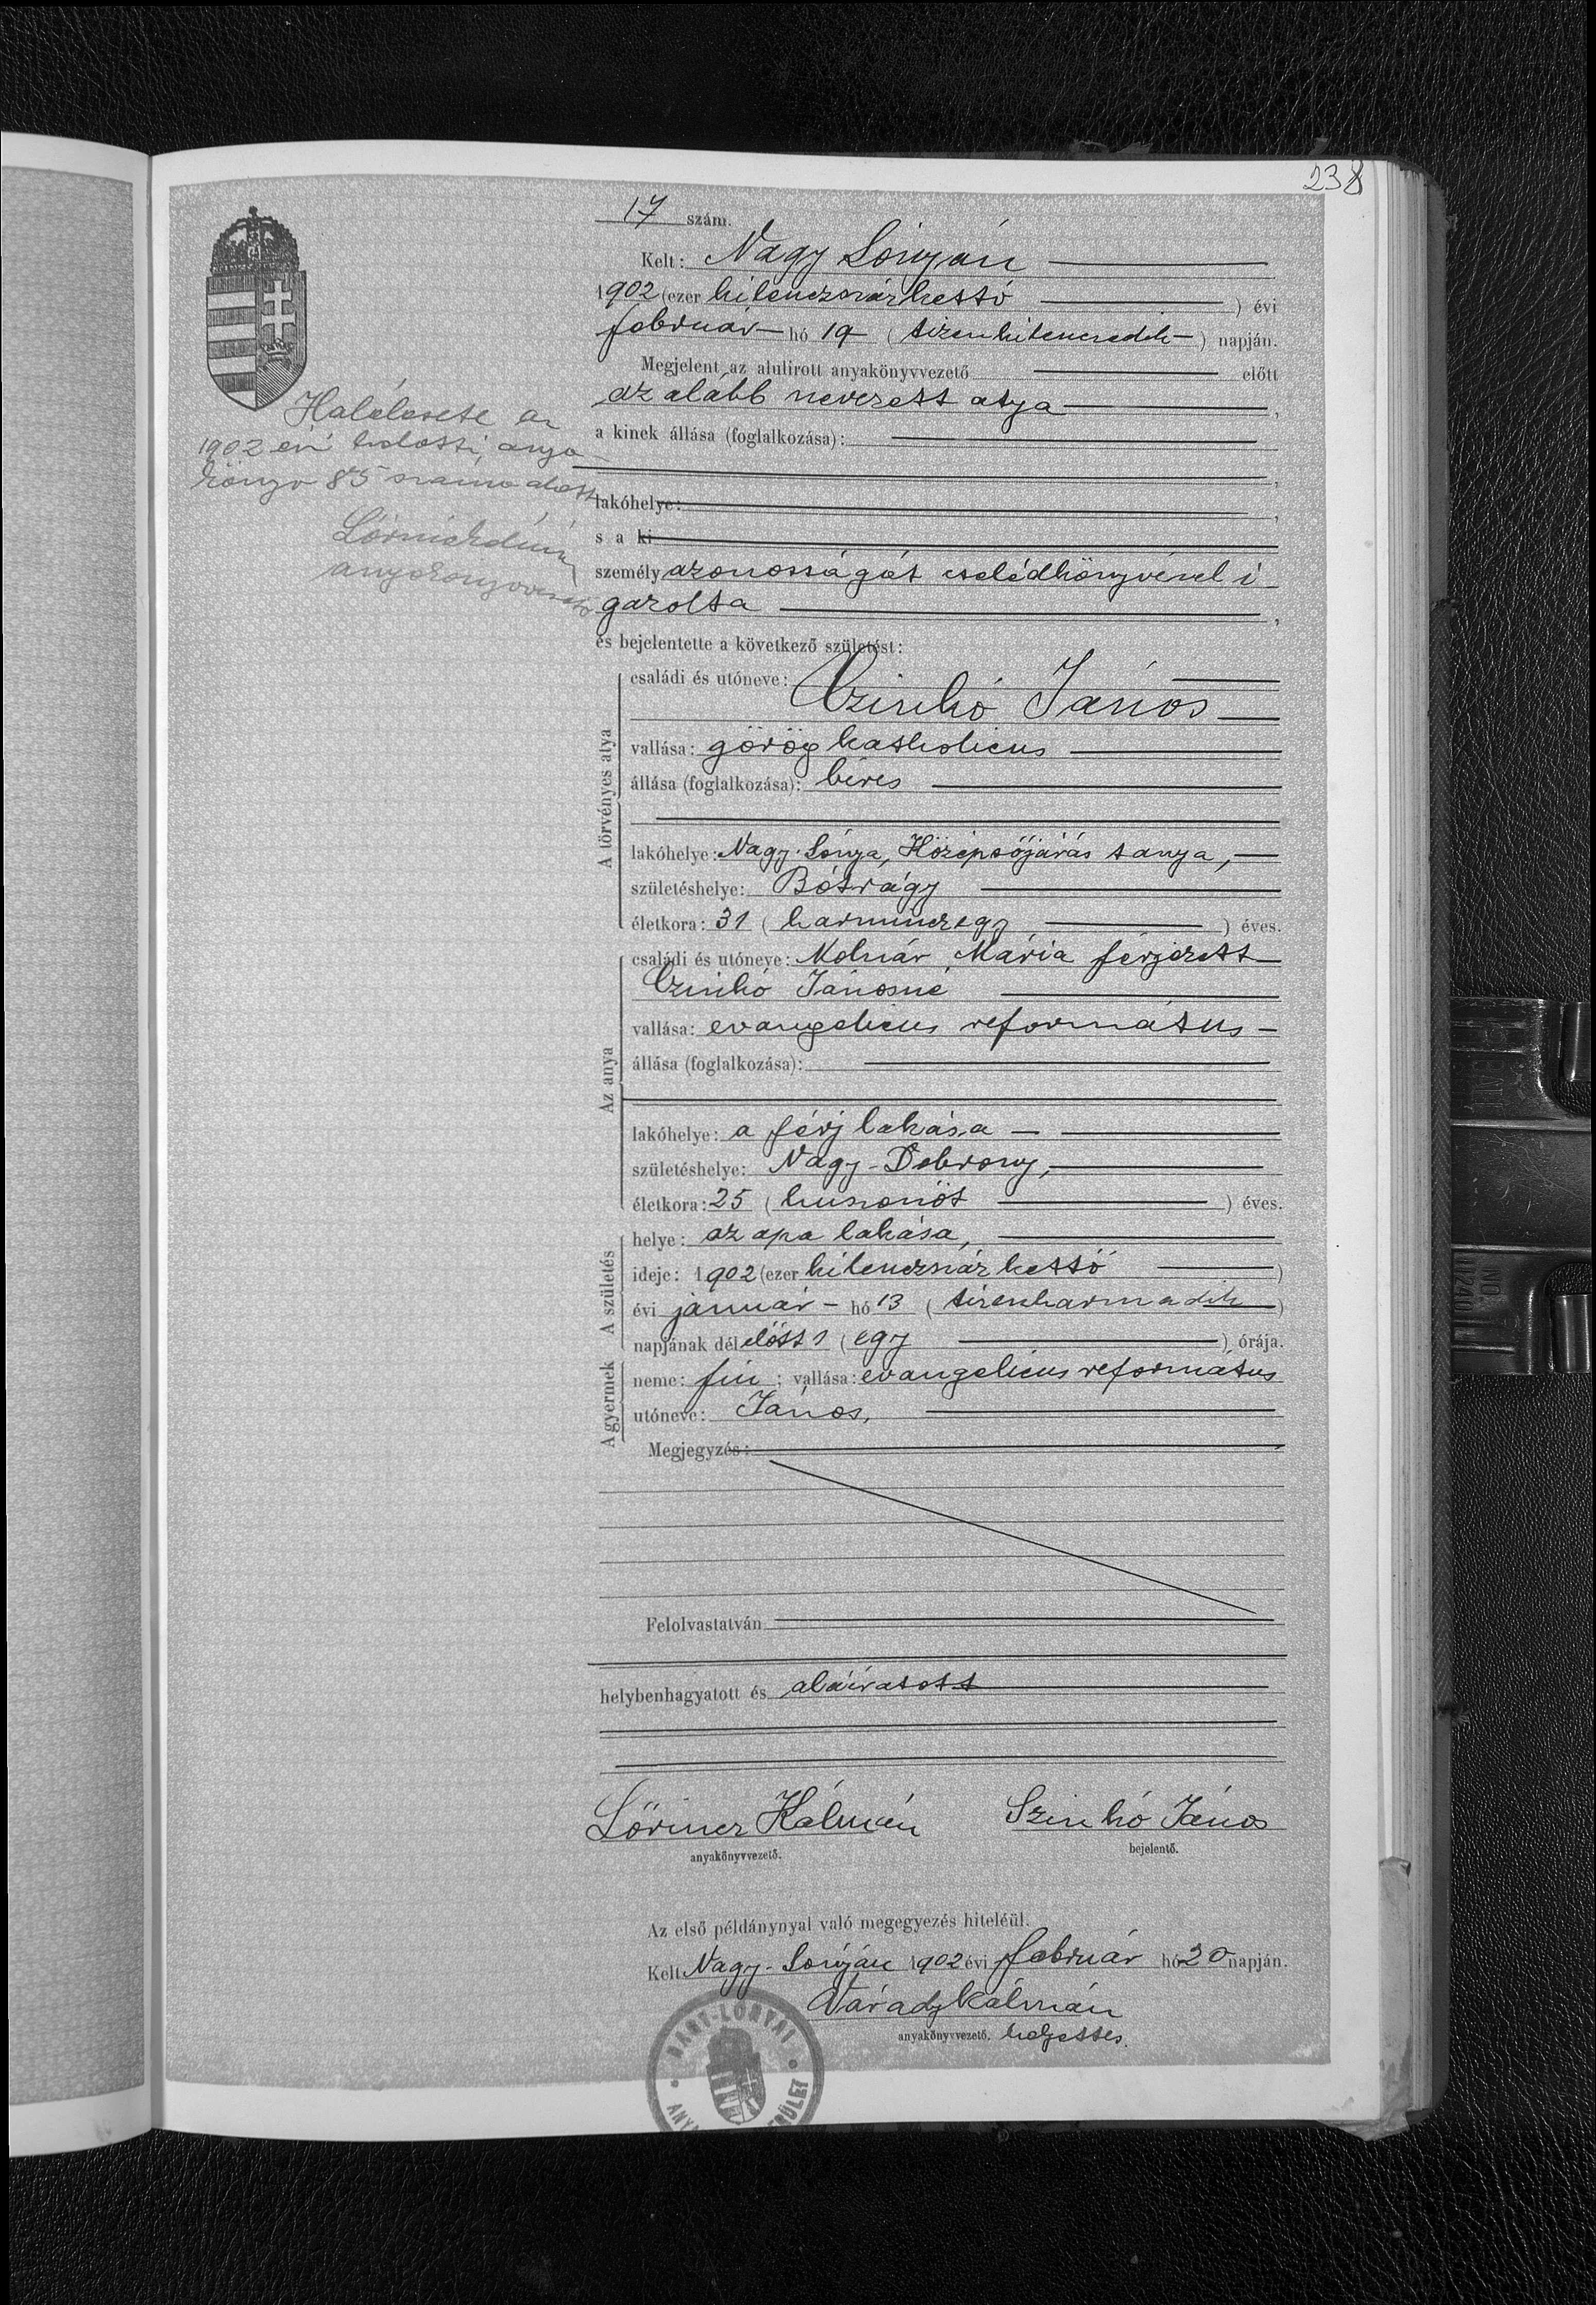 238
17 szám.
Kelt: Nagy Lónyán
1902 (ezer kilenczszázkettő ) évi
február hó 19 ( tizenkilenczedik ) napján.
Megjelent az alulirott anyakönyvvezető előtt
az alább nevezett atya,
a kinek állása (foglalkozása):
lakóhelye:
s a ki
személyazonosságát cselédkönyvével i
gazolta,
és bejelentette a következő születést:
Halálesete az
1902 évi halotti anya-
könyv 85 száma alatt
anyakönyvvezető
A törvényes atya
családi és utóneve:
Czinkó János
vallása: görög katholicus
állása (foglalkozása): béres
lakóhelye: Nagy-Lónya, Középsőjárás tanya,
születéshelye: Bótrágy
életkora: 31 ( harminczegy ) éves.
Az anya
családi és utóneve: Molnár Mária férjezett
Czinkó Jánosné
vallása: evangelicus református
állása (foglalkozása):
lakóhelye: a férj lakása
születéshelye: Nagy-Dobrony,
életkora: 25 ( huszonöt ) éves.
A születés
helye: az apa lakása,
ideje: 1902 (ezer kilenczszázkettő )
évi január hó 13 ( tizenharmadik )
napjának délelőtt 1 ( egy ) órája.
A gyermek
neme: fiú; vallása: evangelicus református
utóneve: János,
Megjegyzés:
Felolvastatván
helybenhagyatott és aláíratott
Lőrincz Kálmán Szinkó János
anyakönyvvezető. bejelentő.
Az első példánynyal való megegyezés hiteléül.
Kelt Nagy-Lónyán 1902 évi február hó 20 napján.
Várady Kálmán
anyakönyvvezető. helyettes.